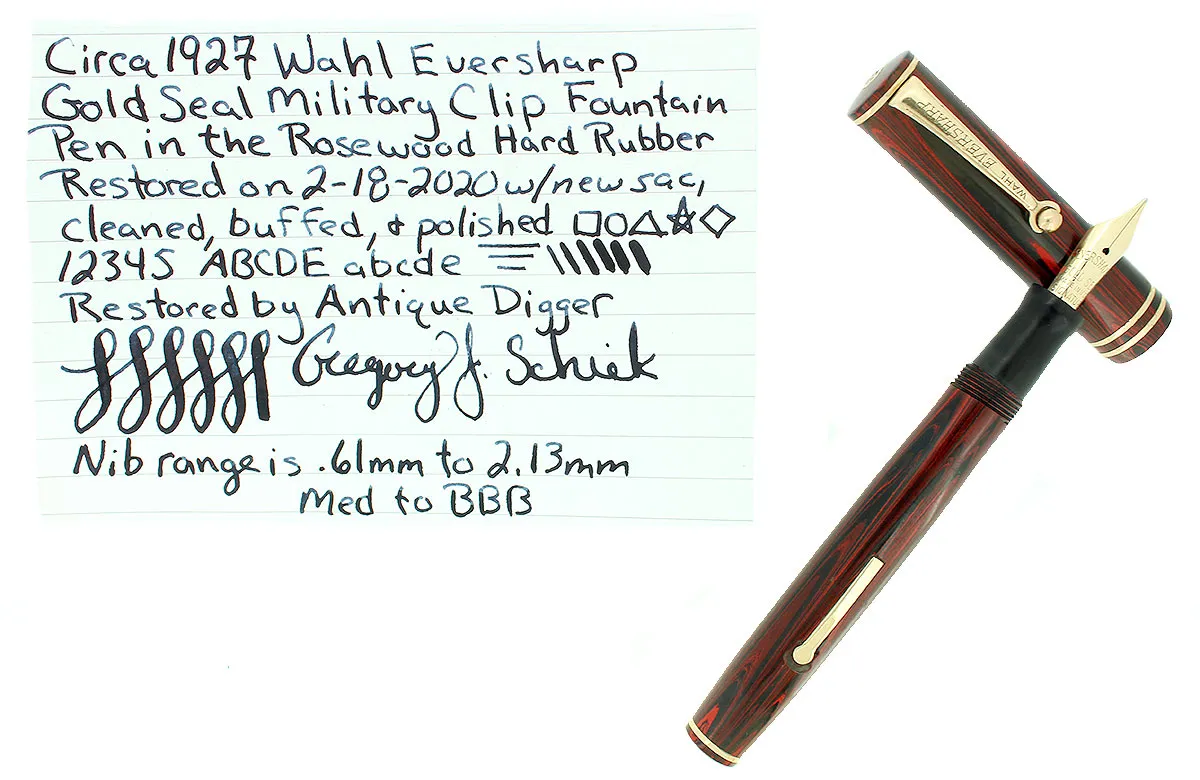 Circa 1927 Wahl Eversharp
Gold Seal Military Clip Fountain
Pen in the Rosewood Hard Rubber
Restored on 2-18-2020 w/new sac,
cleaned, buffed, & polished
12345 ABCDE abcde
Restored by Antique Digger
Gregory J. Schiek
Nib range is .61mm to 2.13mm
Med to BBB
WAHL EVERSHARP